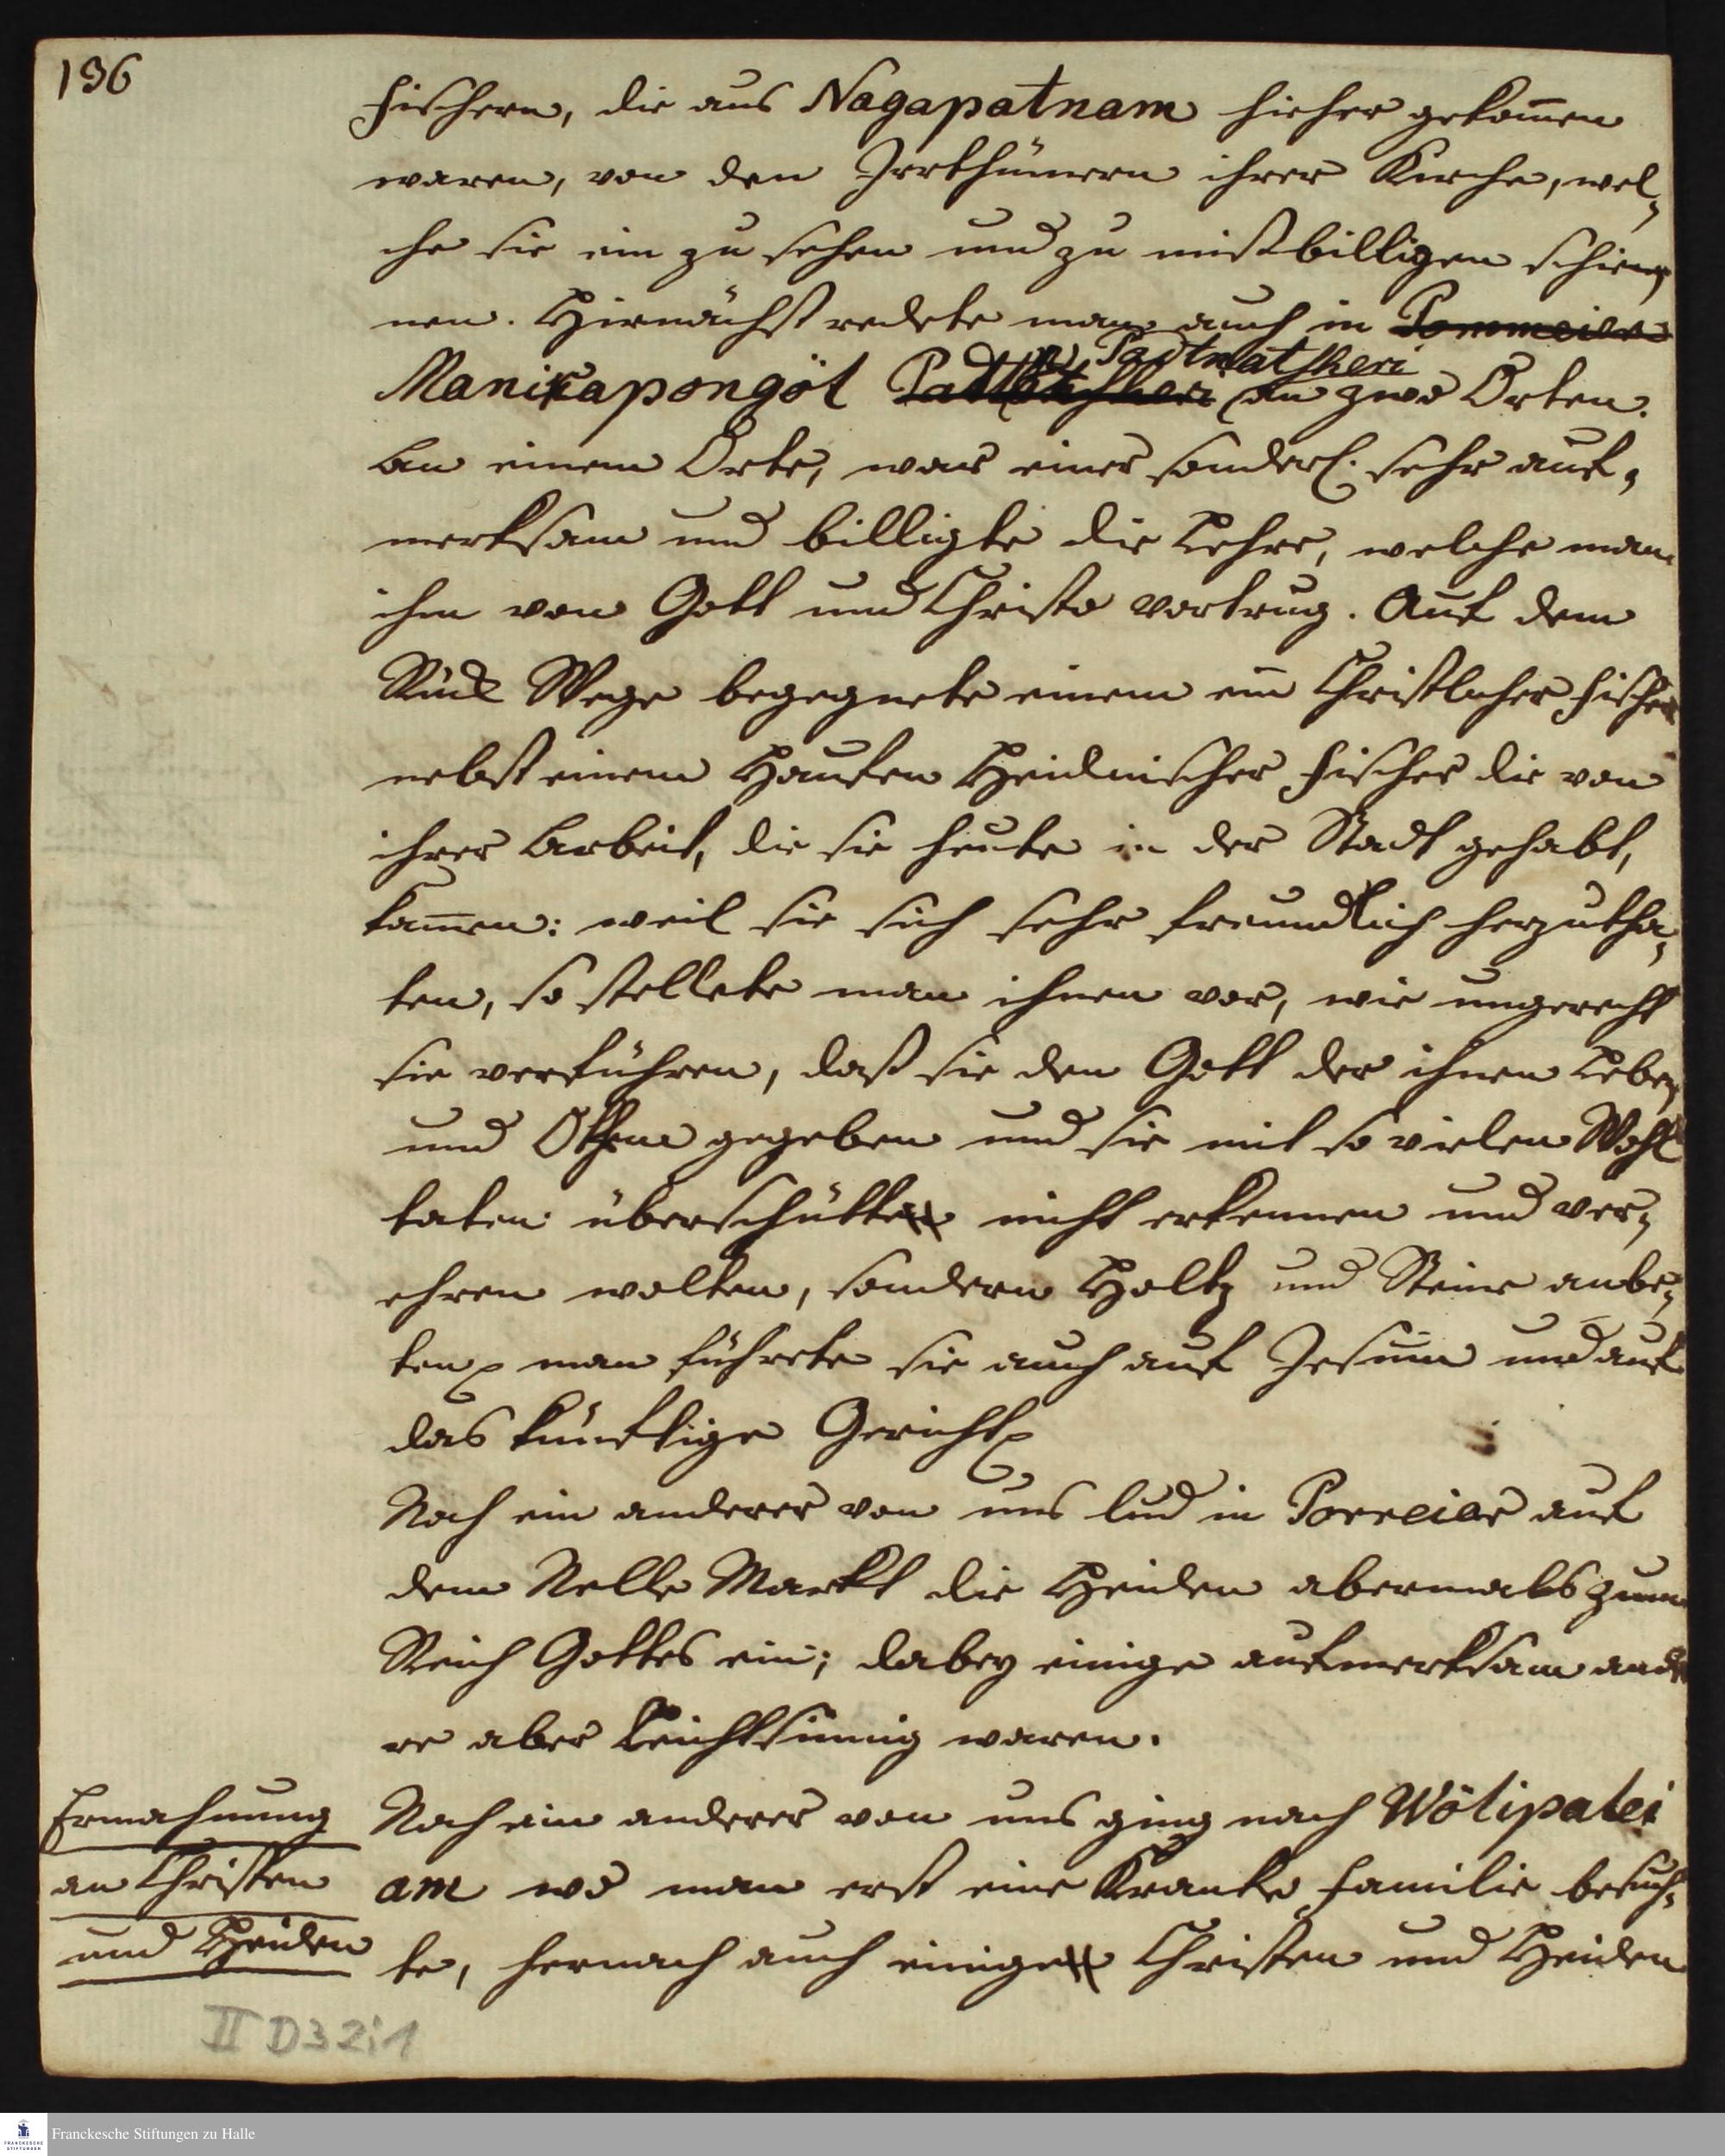 196
Fischern, die aus Nagapatnam hieher gekom̄en
waren, von den Irrthümern ihrer Kirche, wel-
che sie ein zu sehen und zu mißbilligen schie-
nen. Hiernächst redete man auch in Pommeier
Padtnatscheri
Manikapongöl an zwo Orten.
An einem Orte, war einer sonderl. sehr auf-
merksam und billigte die Lehre, welche man
ihm von Gott und Christo vortrug. Auf dem
Rück Wege begegnete einem ein Christlicher Fischer
nebst einem Haufen Heidnischer Fischer die von
ihrer Arbeit, die sie heute in der Stadt gehabt,
kam̄en: weil sie sich sehr freundlich herzutha-
ten, so stellete man ihnen vor, wie ungerecht
sie verführen, daß sie den Gott der ihnen Leben
und Othem gegeben und sie mit so vielen Wohl
taten überschütte nicht erkennen und ver-
ehren wolten, sondern Holtz und Steine anbe-
ten, man führete sie auch auf Jesum und auf
das künftige Gericht
Noch ein anderer von uns lud in Porreiar auf
dem Nelle Markt die Heiden abermals zum
Reich Gottes ein; dabey einige aufmerksam ande
re aber leichtsinnig waren.
Ermahnung
an Christen
und Heiden
Noch ein anderer von uns ging nach Wölipalei
am wo man erst eine Kranke Familie besuch-
te, hernach auch einige Christen und Heiden
II D32:1
Franckesche Stiftungen zu Halle
FRANCKESCHE STIFTUNGEN